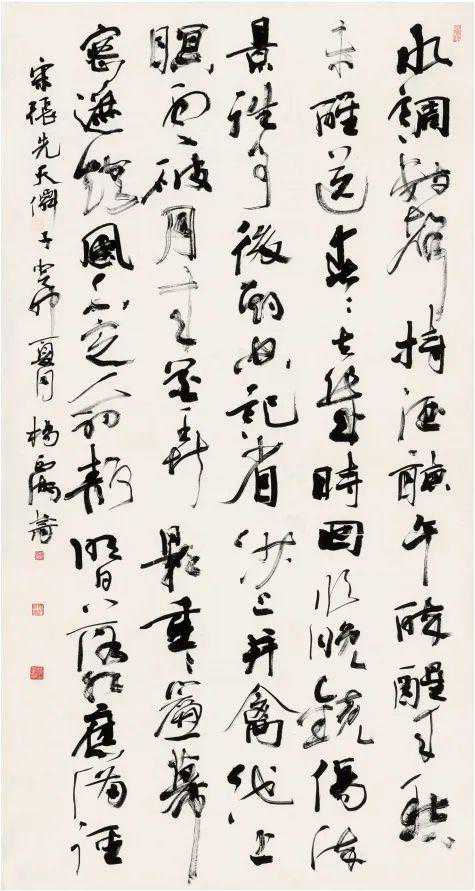 水調數聲持酒聽午醉醒来愁
未醒送春〻去幾時回臨晚鏡傷流
景往事後期空記省沙上并禽池上
暝雲破月来花弄影重〻簾幕
密遮燈風不定人初靜明日落紅應滿徑
宋張先天僊子癸卯夏月楊